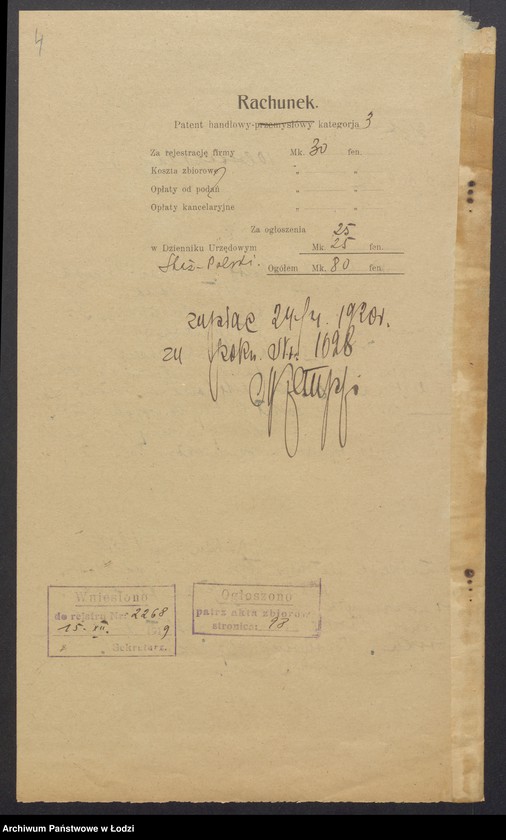 4
Rachunek.
Patent handlowy-przemysłowy kategorja 3
Za rejestrację firmy Mk. 30 fen.
Koszta zbiorowe
Opłaty od podań
Opłaty kancelaryjne
Za ogłoszenia 25
w Dzienniku Urzędowym Mk. 25 fen.
Ogółem Mk. 80 fen.
1920r.
za pokw. Nr. 1028
Wniesiono
do rejstru Nr. 2268
15. XII. 1919
Sekretarz.
Ogłoszono
patrz akta zbiorowe
stronica 93
Archiwum Państwowe w Łodzi